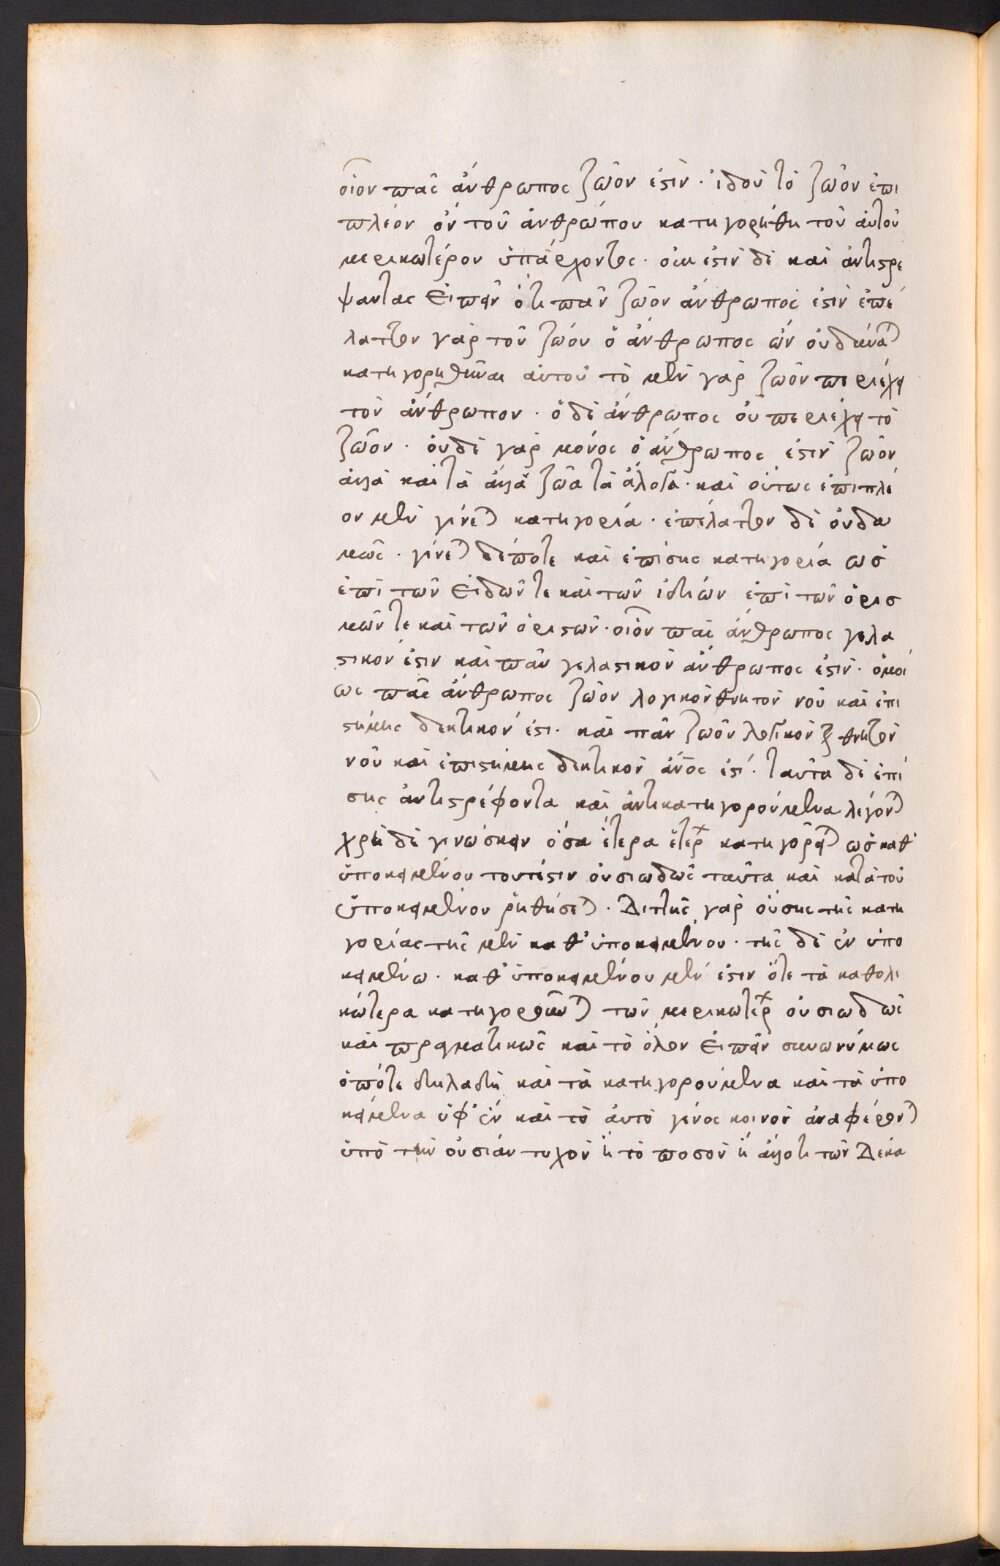 οἷον πᾶς ἄνθρωπος ζῶόν ἐστιν · ἰδοὺ τὸ ζῶον ἐπι
πλέον ὂν τοῦ ἀνθρώπου κατηγορήθη τοῦ αὐτοῦ
μερικωτέρου ὑπάρχοντος · οὐκ ἔστιν δὲ καὶ ἀντιστρέ
ψαντας εἰπεῖν ὅτι πᾶν ζῶον ἄνθρωπός ἐστιν ἐπέ
λαττον γὰρ τοῦ ζώου ὁ ἄνθρωπος ὢν οὐ δύναται
κατηγορηθῆναι αὐτοῦ τὸ μὲν γὰρ ζῶον περιέχει
τὸν ἄνθρωπον · ὁ δὲ ἄνθρωπος οὐ περιέχει τὸ
ζῶον · οὐδὲ γὰρ μόνος ὁ ἄνθρωπος ἐστὶν ζῶον
ἀλλὰ καὶ τὰ ἄλλα ζῶα τὰ ἄλογα · καὶ οὕτως ἐπιπλέ
ον μὲν γίνεται κατηγορία · ἐπέλαττον δὲ οὐδα
μῶς · γίνεται δέποτε καὶ ἐπίσης κατηγορία ὡς
ἐπὶ τῶν εἰδῶν τε καὶ τῶν ἰδίων ἐπὶ τῶν ὁρισ
μῶν τε καὶ τῶν ὁριστῶν · οἷον πᾶς ἄνθρωπος γελα
στικόν ἐστιν καὶ πᾶν γελαστικὸν ἄνθρωπος ἐστίν · ὁμοί
ως πᾶς ἄνθρωπος ζῶον λογικὸν θνητὸν νοῦ καὶ ἐπι
στήμης δεκτικόν ἐστι · καὶ πᾶν ζῶον λογικὸν καὶ θνητὸν
νοῦ καὶ ἐπιστήμης δεκτικὸν ἄνος ἐστί · ταῦτα δὲ ἐπί
σης ἀντιστρέφοντα καὶ ἀντικατηγορούμενα λέγονται
χρὴ δὲ γινώσκειν ὅσα ἕτερα ἑτέρων κατηγορεῖται ὡς καθ'
ὑποκειμένου τουτέστιν οὐσιωδῶς ταῦτα καὶ κατὰ τοῦ
ὑποκειμένου ῥηθήσεται · Διττῆς γὰρ οὔσης τῆς κατη
γορίας τῆς μὲν καθ' ὑποκειμένου · τῆς δὲ ἐν ὑπο
κειμένω · καθ' ὑποκειμένου μέν ἐστιν ὅτε τὰ καθολι
κώτερα κατηγορηθῶσι τῶν μερικωτέρων οὐσιωδῶς
καὶ πραγματικῶς καὶ τὸ ὅλον εἰπεῖν συνωνύμως
ὁπότε δηλαδὴ καὶ τὰ κατηγορούμενα καὶ τὰ ὑπο
κείμενα ὑφ' ἓν καὶ τὸ αὐτὸ γένος κοινὸν ἀναφέρονται
ὑπὸ τὴν οὐσίαν τυχὸν ἢ τὸ ποσὸν ἢ ἄλλο τι τῶν Δέκα